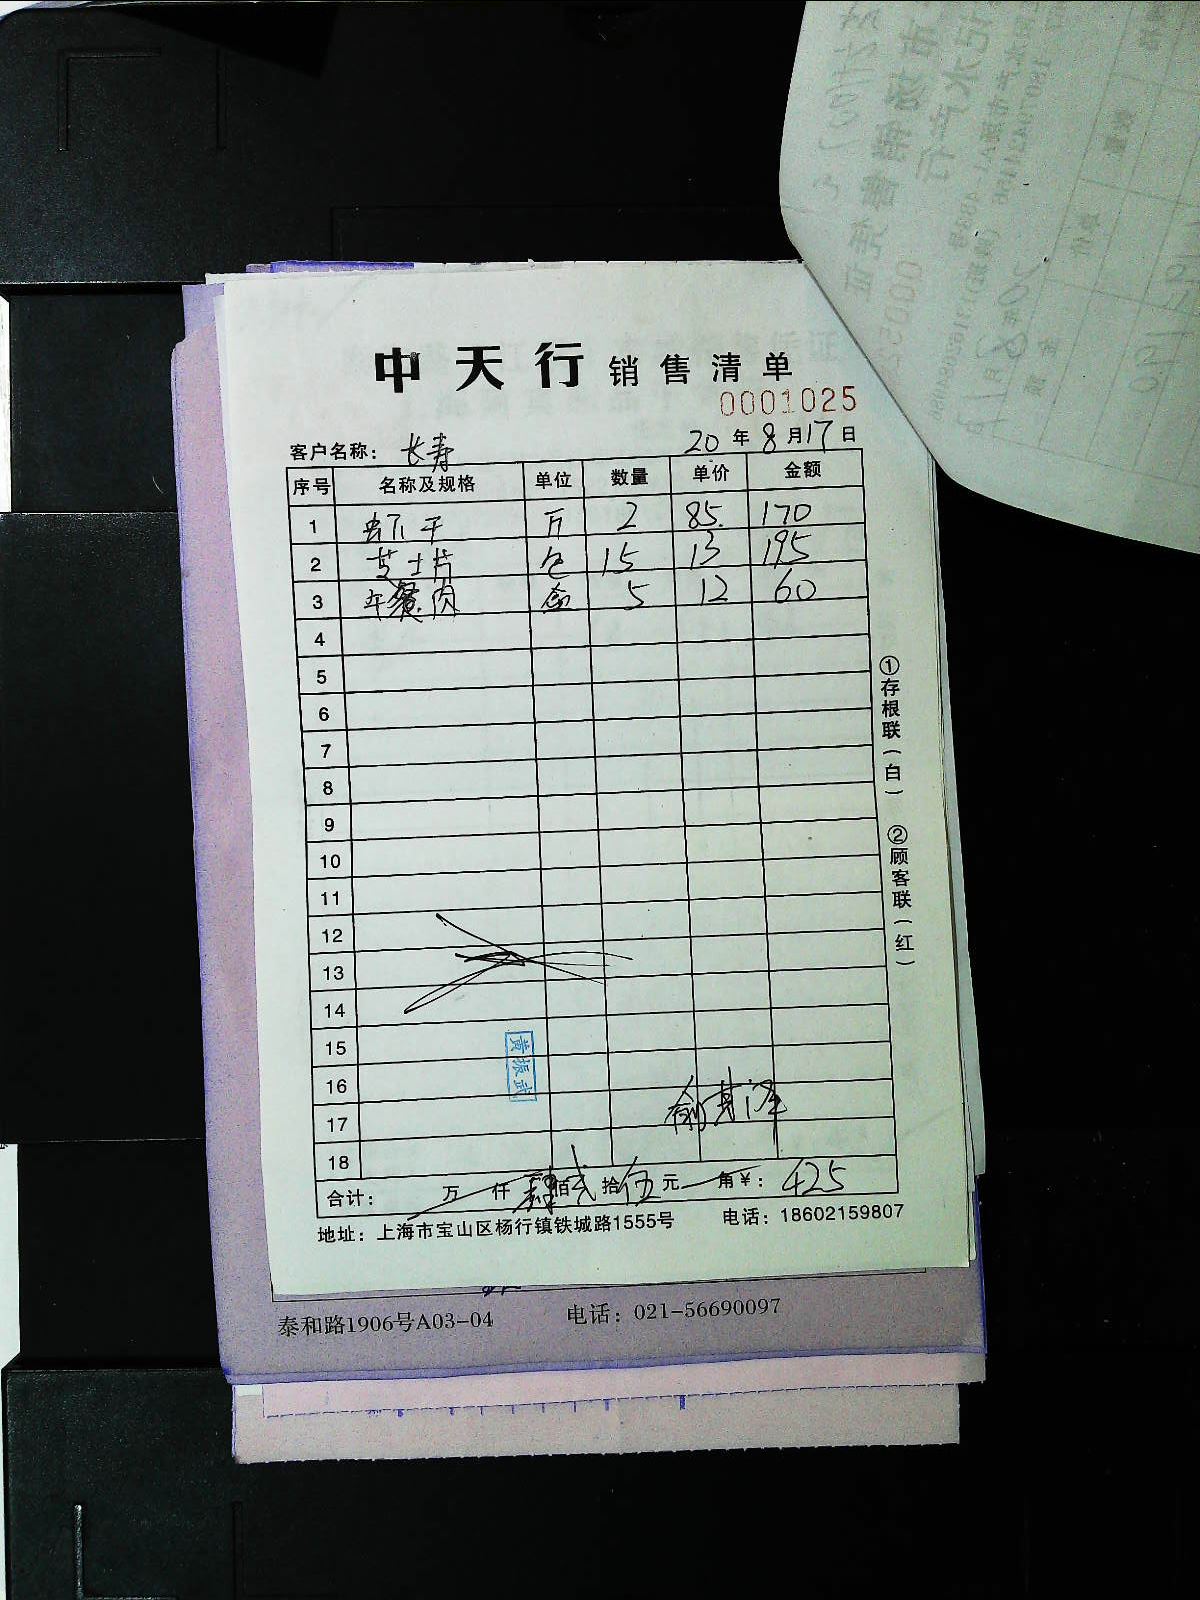 中天行销售清单
0001025
客户名称: 长寿 20年8月17日
序号 名称及规格 单位 数量 单价 金额
1 虾干 斤 2 85. 170
2 芝士片 包 15 13 195
3 午餐肉 盒 5 12 60
4
5
6
7
8
9
10
11
12
13
14
15
16
17
18
黄振武
合计: 万 仟 肆佰贰拾伍元 角 ¥: 425
地址: 上海市宝山区杨行镇铁城路1555号 电话: 18602159807
①存根联(白) ②顾客联(红)
泰和路1906号A03-04 电话: 021-56690097